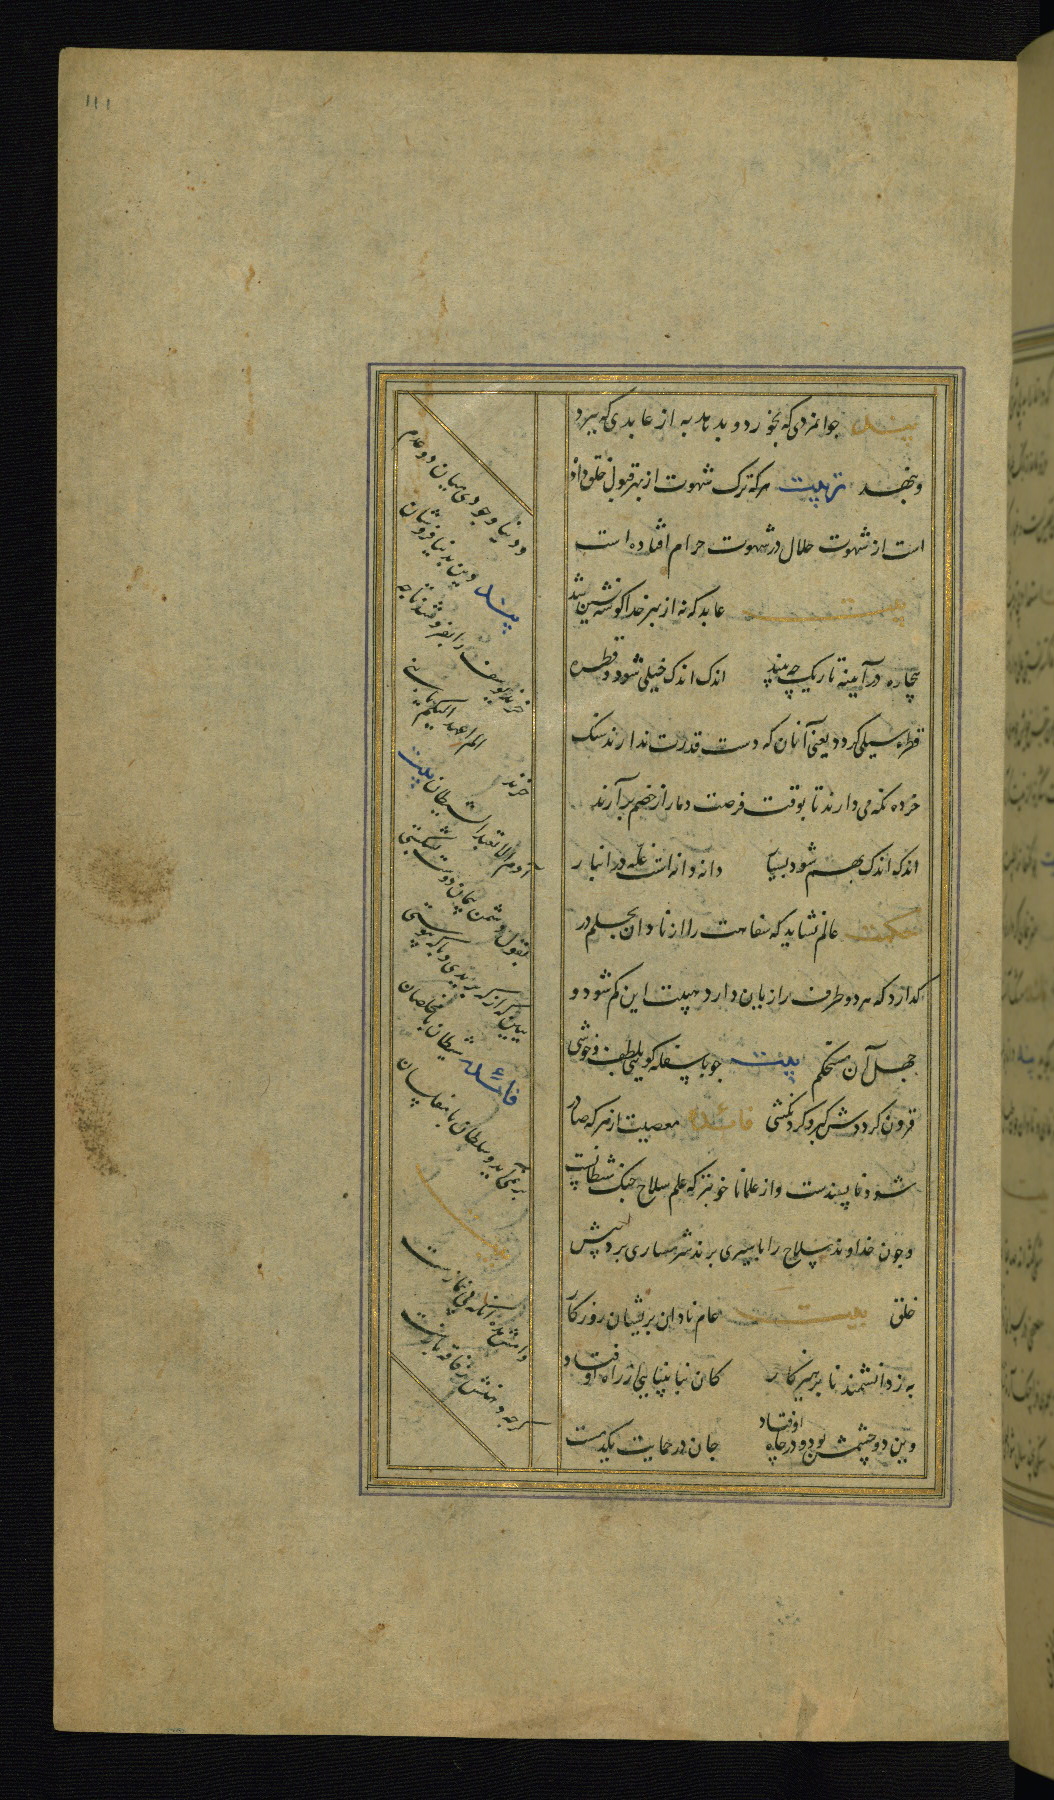 ۱۱۱
پند جوانمردی که بخورد و بدهد به از عابدی که ببرد
و بنهد تربیت هرکه ترک شهوت از بهر قبول خلق داده
است از شهوت حلال در شهوت حرام افتاده است
بیت عابد که نه از بهر خدا گوشه نشیند
بیچاره در آیینه تاریک چه بیند اندک اندک خیلی شود و قطره
قطره سیلی گردد یعنی آنان که دست قدرت ندارند سنک
خرده نکه می دارند تا بوقت فرصت دمار از خصم برآرند
اندک اندک بهم شود بسیار دانه دانه است غله در انبار
حکمت عالم نشاید که سفاهت را از نادان بحلم در
کذارد که هر دو طرف را زیان دارد هیبت این کم شود و
جهل آن مستحکم بیت چو با سفله کویی بلطف و خوشی
فزون کرددش کبر و کردنکشی فائده معصیت از هرکه صادر
شود ناپسندست و از علما ناخوبتر که علم سلاح جنک شیطانست
و چون خداوند سلاح را باسیری برند شرمساری برد پیش
خلق بیت عام نادان پریشان روزکار
به ز دانشمند ناپرهیزکار کان نابینایی از راه اوفتاد
وین دو چشمش بود و در چاه اوفتاد جان در حمایت یکدمست
و دنیا وجودی میان دو عدم
پند دین بدنیا فروشان
خرند یوسف را بفروشند تا چه
خرند الم اعهد الیکم یا بنی
آدم الا تعبدوا الشیطان بیت
بقول دشمن پیمان دوست بشکستی
ببین که از که بریدی و با که پیوستی
فائده شیطان با مخلصان
بر نمی آید و سلطان با مفلسان
بیت
وامش مده آنکه بی نمازست
کرچه دهنش ز فاقه بازست